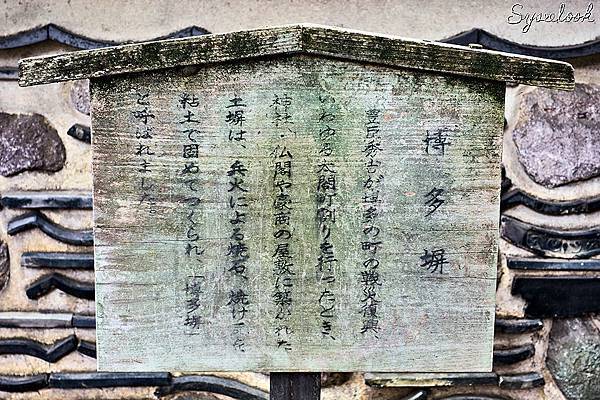 博多塀
豊臣秀吉が博多の町の戦災復興、
いわゆる太閤町割りを行ったとき、
神社・仏閣や豪商の屋敷に築かれた
土塀は、兵火による焼石、焼け瓦を、
粘土で固めてつくられ、「博多塀」
と呼ばれました。
Syseelook